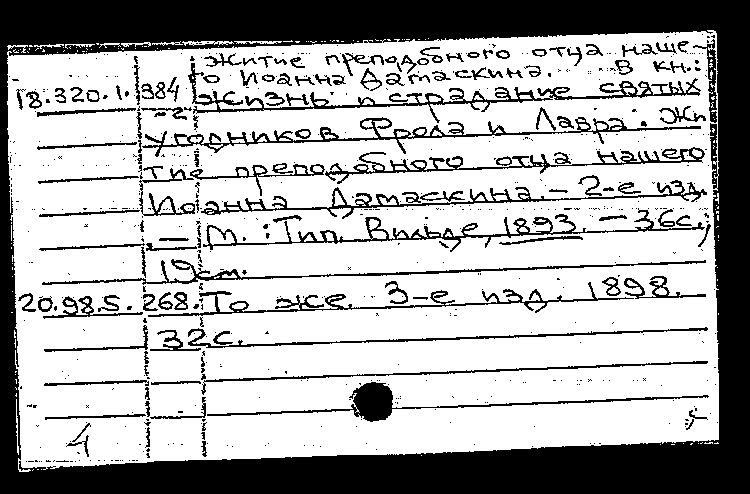 Житие преподобного отца наше-
го Иоанна Дамаскина. В кн.:
18.320.1. 384 Жизнь и страдание святых
-2
угодников Фрола и Лавра. Жи
тие преподобного отца нашего
Иоанна Дамаскина. - 2-е изд.
. - М. : Тип. Вильде, 1893. - 36с.;
19см.
20.98.5. 268. То же. 3-е изд. 1898.
32с.
4